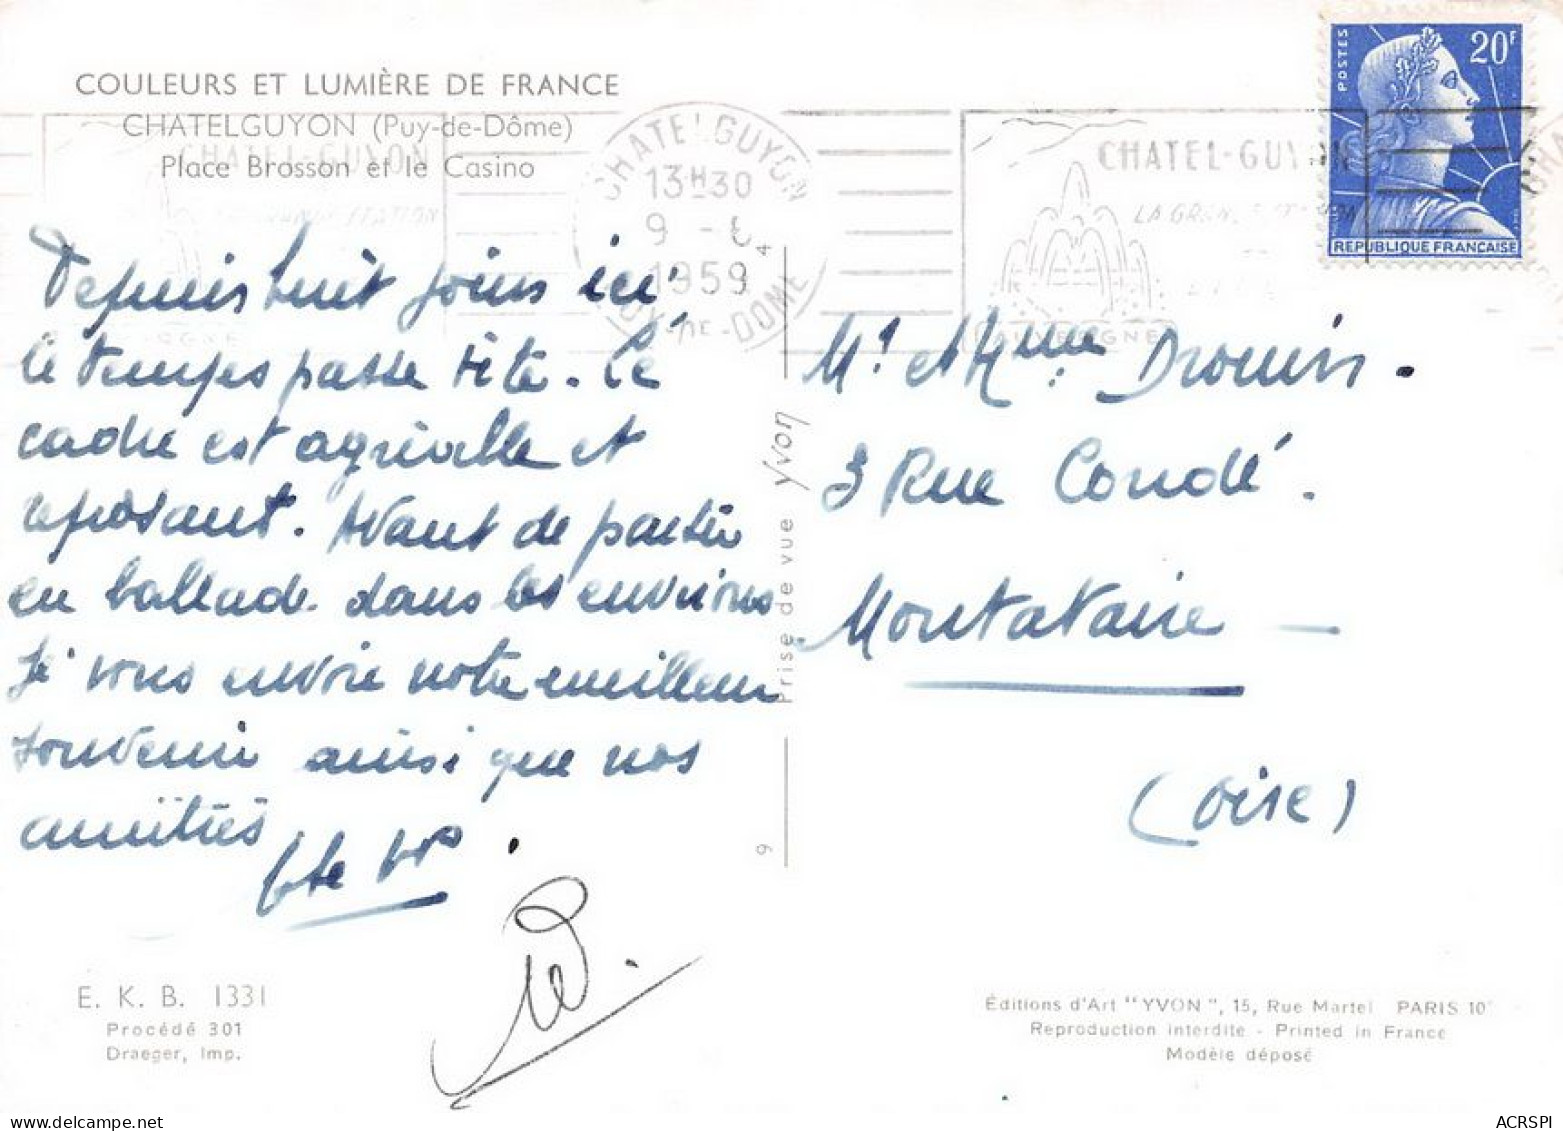 COULEURS ET LUMIÈRE DE FRANCE
CHATELGUYON (Puy-de-Dôme)
Place Brosson et le Casino
CHATEL-GUYON
CHATELGUYON
13H30
9 -
1959
PUY-DE-DOME
CHATEL-GUYON
AUVERGNE
POSTES
20F
REPUBLIQUE FRANCAISE
Depuis huit jours ici
le temps passe vite. Le
cadre est agréable et
reposant. Avant de partir
en ballade dans les environs
Je vous envoie notre meilleur
souvenir ainsi que nos
amitiés
Prise de vue Yvon
9
Mr et Mme Drouin.
3 Rue Condé.
Montataire —
(Oise)
E. K. B. 1331
Procédé 301
Draeger, Imp.
Éditions d'Art "YVON", 15, Rue Martel PARIS 10
Reproduction interdite - Printed in France
Modèle déposé
delcampe.net
ACRSPI